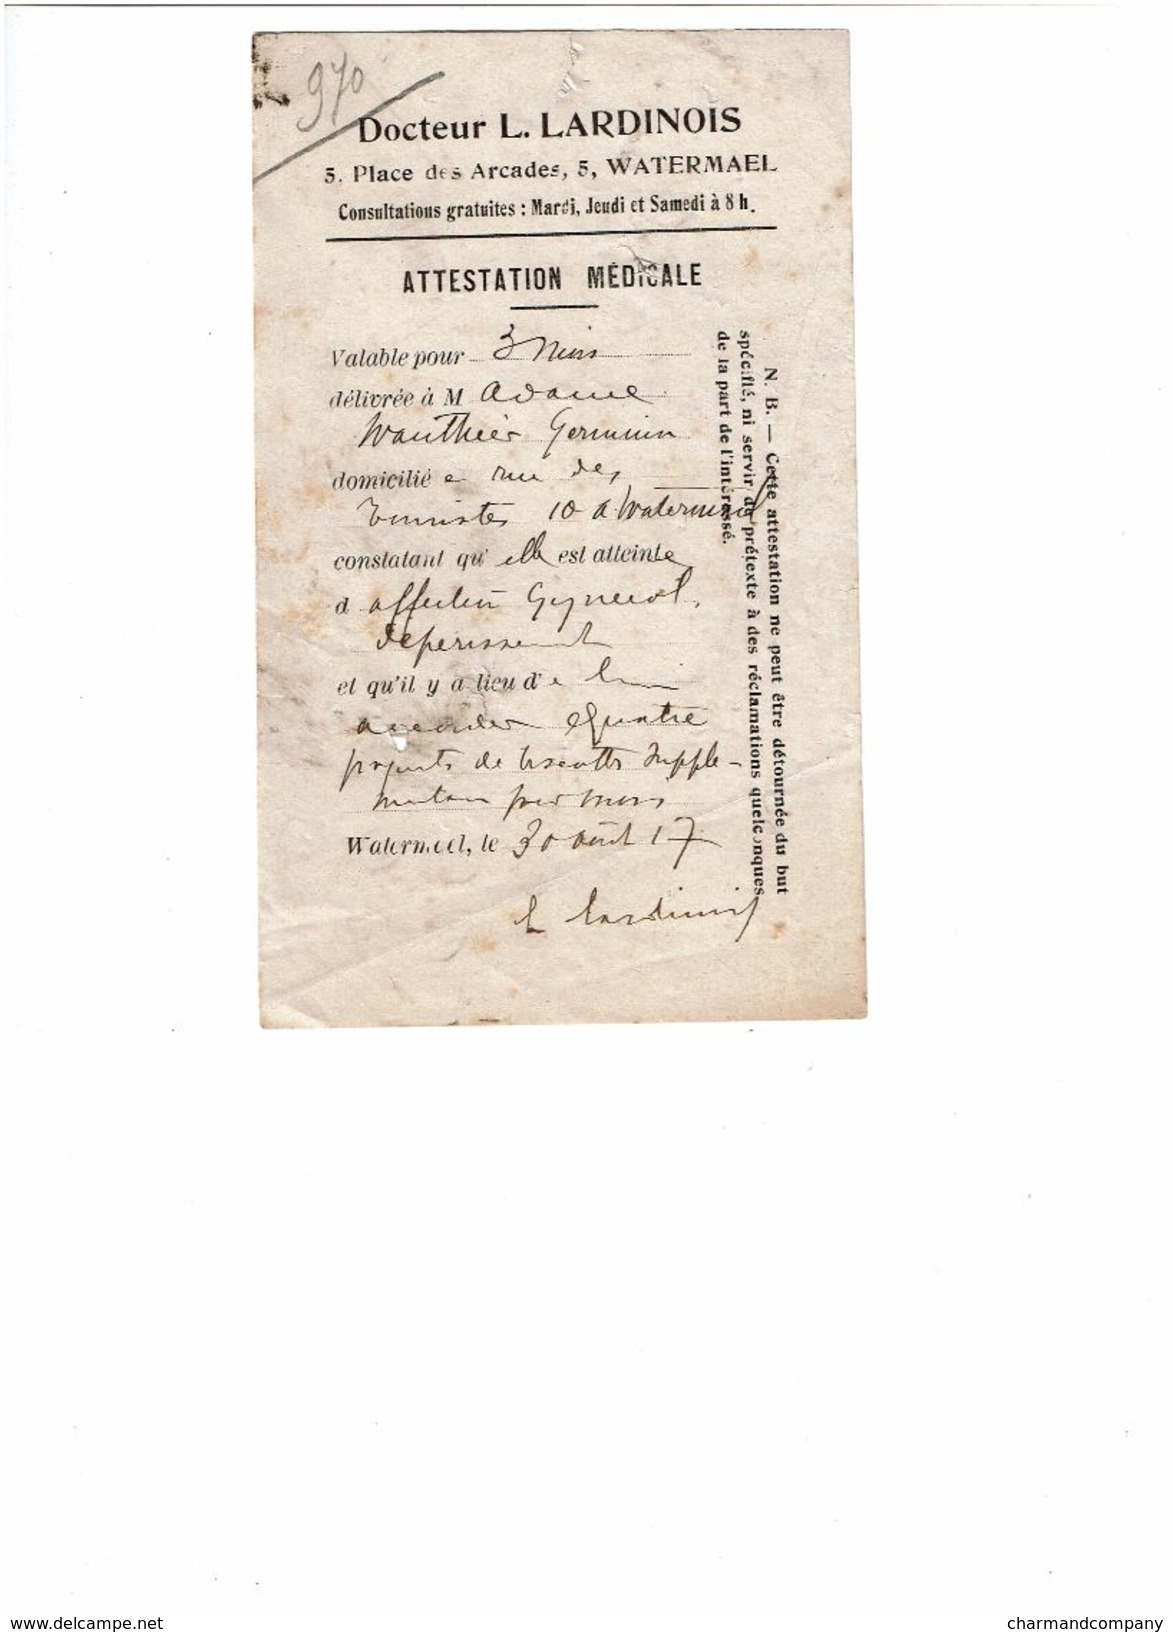 970
Docteur L. LARDINOIS
5, Place des Arcades, 5, WATERMAEL
Consultations gratuites : Mardi, Jeudi et Samedi à 8 h.
ATTESTATION MÉDICALE
Valable pour 3 Mois
délivrée à M adame
Wauthier Germain
domicilié e rue des
10 à Watermael
constatant qu' elle est atteinte
d affection Gynecol.
deperissement
et qu'il y a lieu d e lui
accorder quatre
paquets de biscottes supple-
mentaires par mois
Watermael, le 30 août 17
L Lardinois
N. B. — Cette attestation ne peut être détournée du but
spécifié, ni servir de prétexte à des réclamations quelconques
de la part de l'intéressé.
www.delcampe.net
charmandcompany